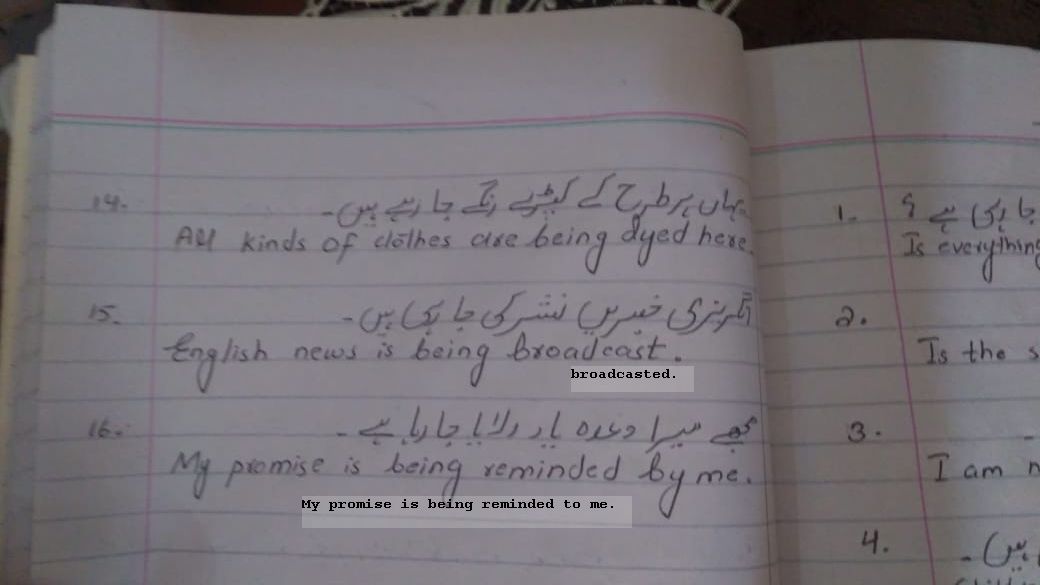 14. یہاں ہر طرح کے کپڑے رنگے جا رہے ہیں۔
All kinds of clothes are being dyed here.
15. انگریزی خبریں نشر کی جا رہی ہیں۔
English news is being broadcast.
broadcasted.
16. مجھے میرا وعدہ یاد دلایا جا رہا ہے۔
My promise is being reminded by me.
My promise is being reminded to me.
1. جا رہی ہے ؟
Is everything
2.
Is the s
3.
I am n
4. ہیں۔